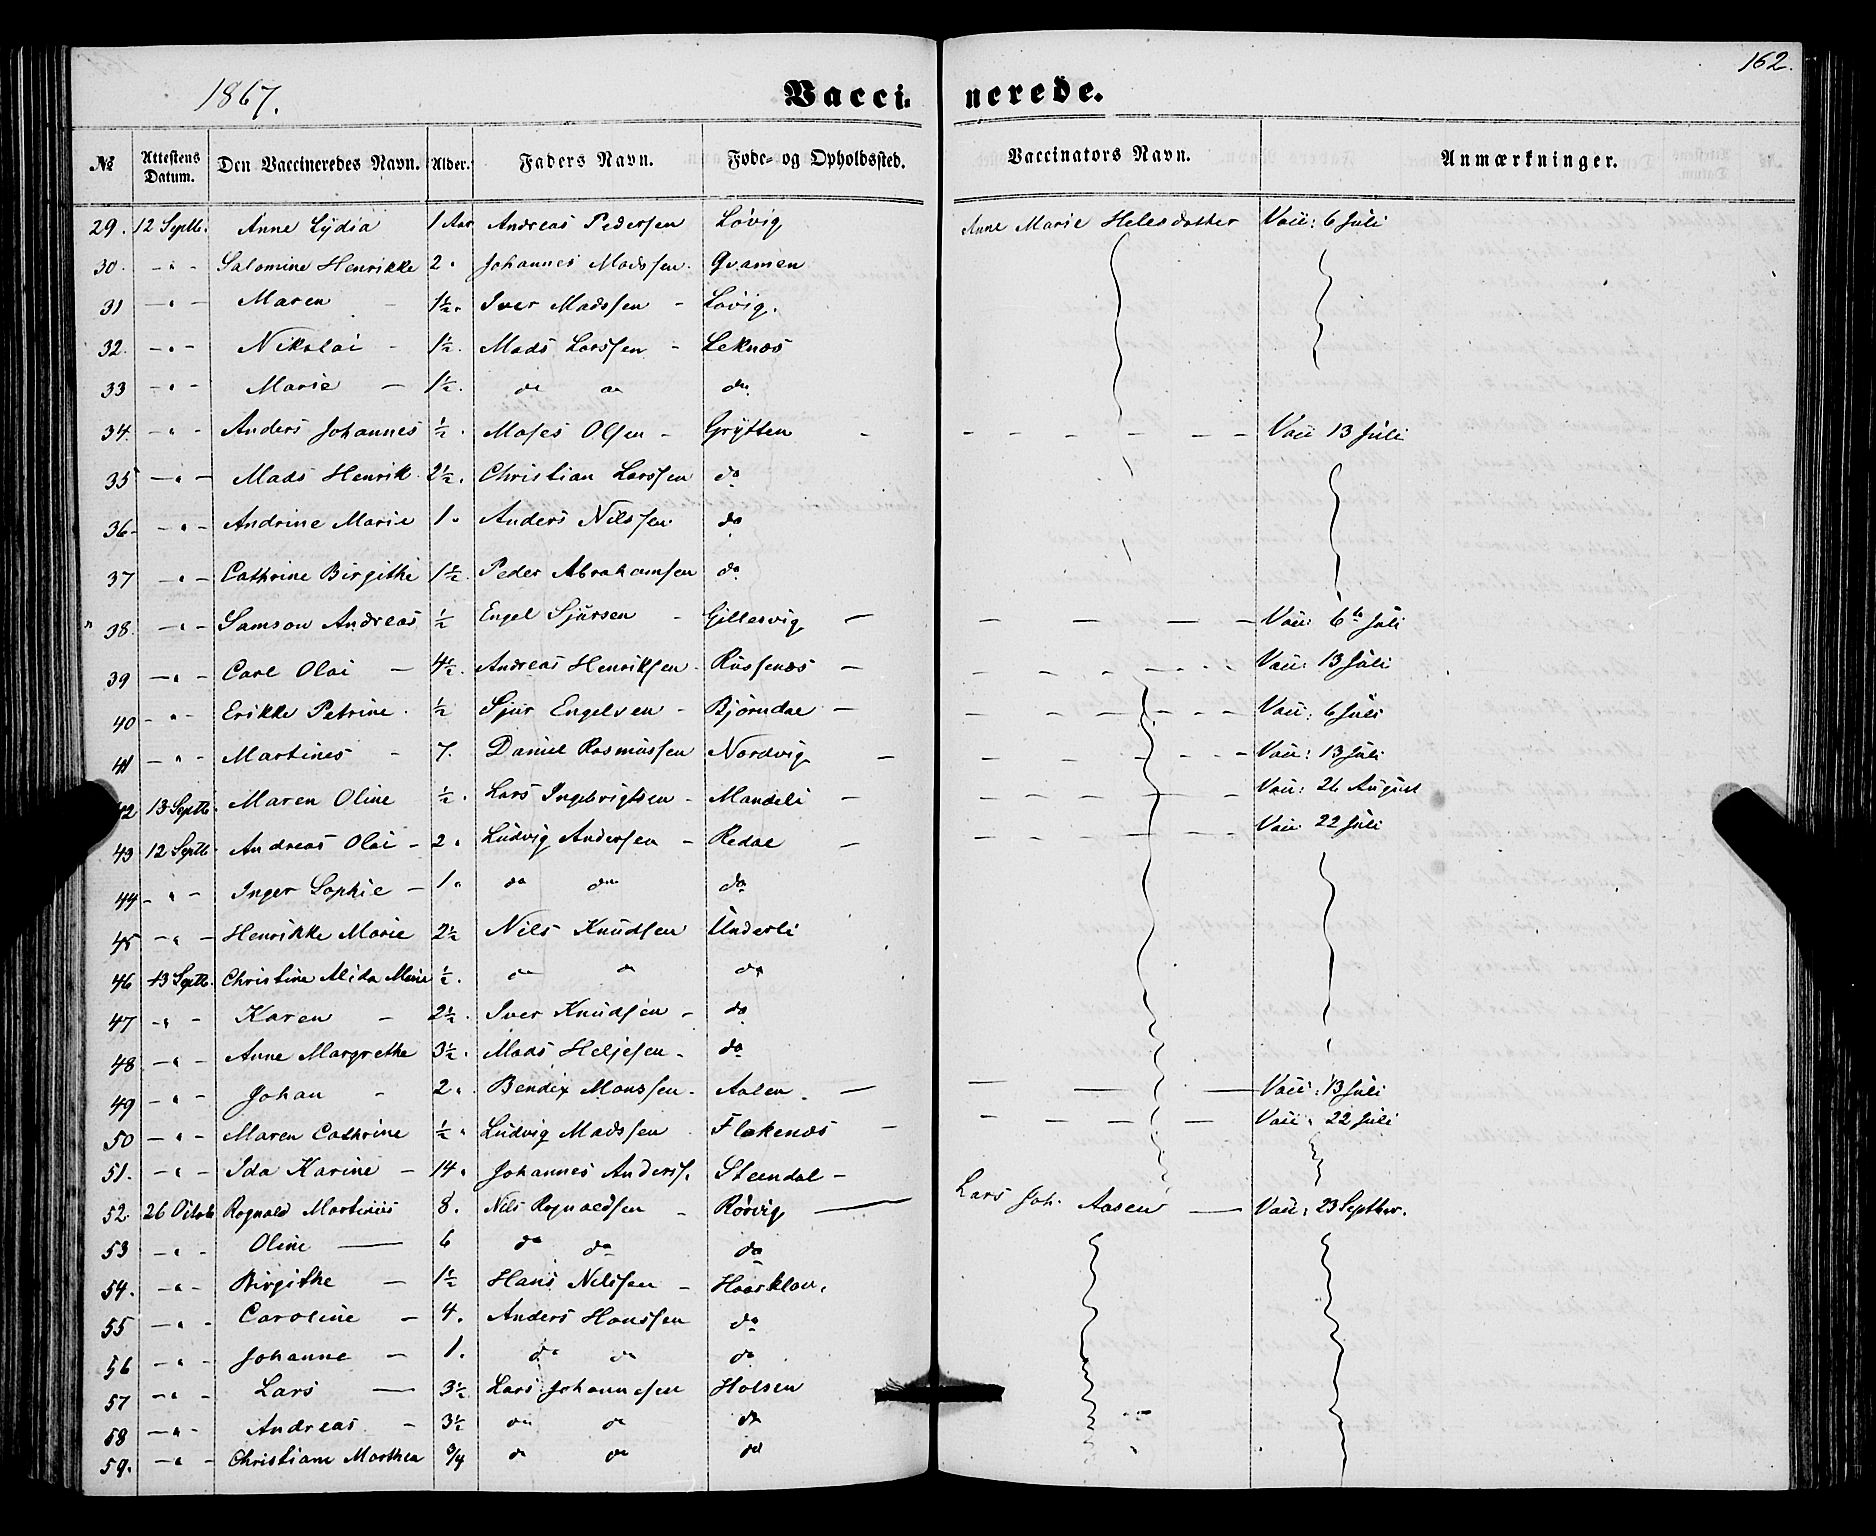 162.
1867. Vacci- nerede.
№ Attestens Datum. Den Vaccineredes Navn. Alder. Faders Navn. Føde- og Opholdssted. Vaccinators Navn. Anmærkninger.
29. 12 Septb. Anne Lydia 1 Aar Andreas Pedersen Løvig Anne Marie Helesdatter Vacc: 6 Juli
30. - " - Salomine Henrikke 2. Johannes Madssen. Qvamen
31 - " - Maren - 1½. Iver Madssen - Løvig.
32. - " - Nikolai - 1½. Mads Larssen - Leknæs
33 - " - Marie - 1½. do do do
34. - " - Anders Johannes ½. Moses Olsen - Grytten - - - - - - - Vacc 13 Juli
35 - " - Mads Henrik 2½. Christian Larssen do
36- - " - Andrine Marie 1. Anders Nilssen do
37 - " - Cathrine Birgithe 1½. Peder Abrahamsen do
38. - " - Samson Andreas ½ Engel Sjursen - Gillesvig - - - - - Vacc: 6te Juli
39 - " - Carl Olai - 4½. Andreas Henriksen. Russenæs - - - - - - Vacc: 13 Juli
40 - " - Erikke Petrine. ½ Sjur Engelsen - Bjørndal - - - - - - Vacc: 6 Juli
41 - " - Martines - 7. Daniel Rasmussen Nordvig - - - - - - Vacc: 13 Juli
42 13 Septb. Maren Oline ½. Lars Ingebrigtsen - Mandeli - - - - - Vacc: 26 August
43 12 Septb. Andreas Olai - 2. Ludvig Andersen - Redal - - - - - Vacc: 22 Juli
44 - " - Inger Sophie - 1. do do do
45 - " - Henrikke Marie 2½ Nils Knudsen Underli
46 13 Septb. Christine Alida Marie ½. do do do
47 - " - Karen - 2½. Iver Knudsen - do
48. - " - Anne Margrethe 3½. Mads Heljesen - do
49 - " - Johan - 2. Bendix Monssen. Aalen. - - - - Vacc: 13 Juli
50 - " - Maren Cathrine ½. Ludvig Madssen Flekenæs - - - - - Vacc: 22 Juli
51. - " - Ida Karine - 14. Johannes Anderss. Steendal -
52. 26 Octob Rognald Martinus 8. Nils Rognaldsen - Rørvig - Lars Joh. Aasen - Vacc: 23 Septbr.
53 - " - Oline - 6 do do do
54. - " - Birgithe - 1½ Hans Nilssen - Haarklau.
55 - " - Caroline - 4. Anders Hanssen do
56 - " - Johanne - 1. do do do
57 - " - Lars - 3½ Lars Johannesen Holsen
58 - " - Andreas - 3½ do do do
59. - " - Christiane Marthea ¾ do do do